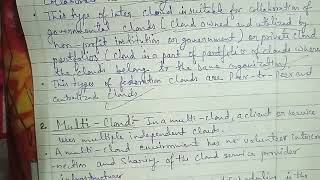 This type of inter cloud is suitable for collaboration of
governmental clouds (Cloud owned and utilized by
non-profit institution or government) or private cloud
portfolios (Cloud is a part of portfolio of clouds where
the clouds belong to the same organization).
This types of federation clouds are Peer-to-Peer and
centralized clouds.
2. Multi-Cloud:- In a multi-cloud, a client or service
uses multiple independent clouds.
A multi-cloud environment has no volunteer interconn-
-ection and sharing of the cloud service provider
infrastructure
is the